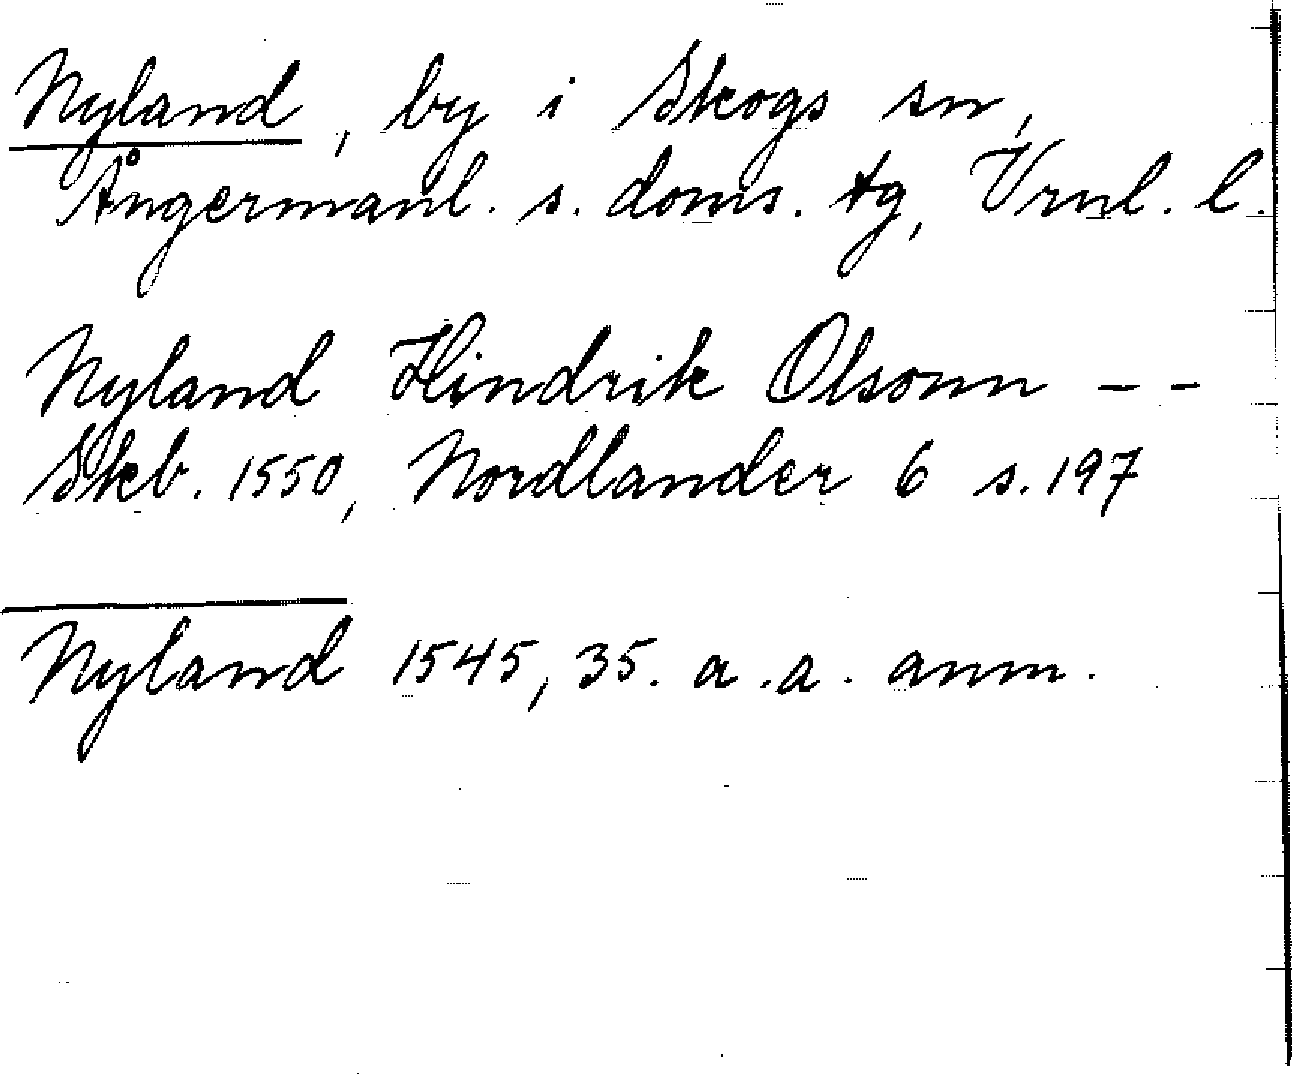 Nyland, by i Skogs sn,
Ångermanl. s. doms. tg, Vrnl. l.
Nyland Hindrik Olsonn - -
Skb. 1550, Nordlander 6 s. 197
Nyland 1545, 35. a. a. anm.